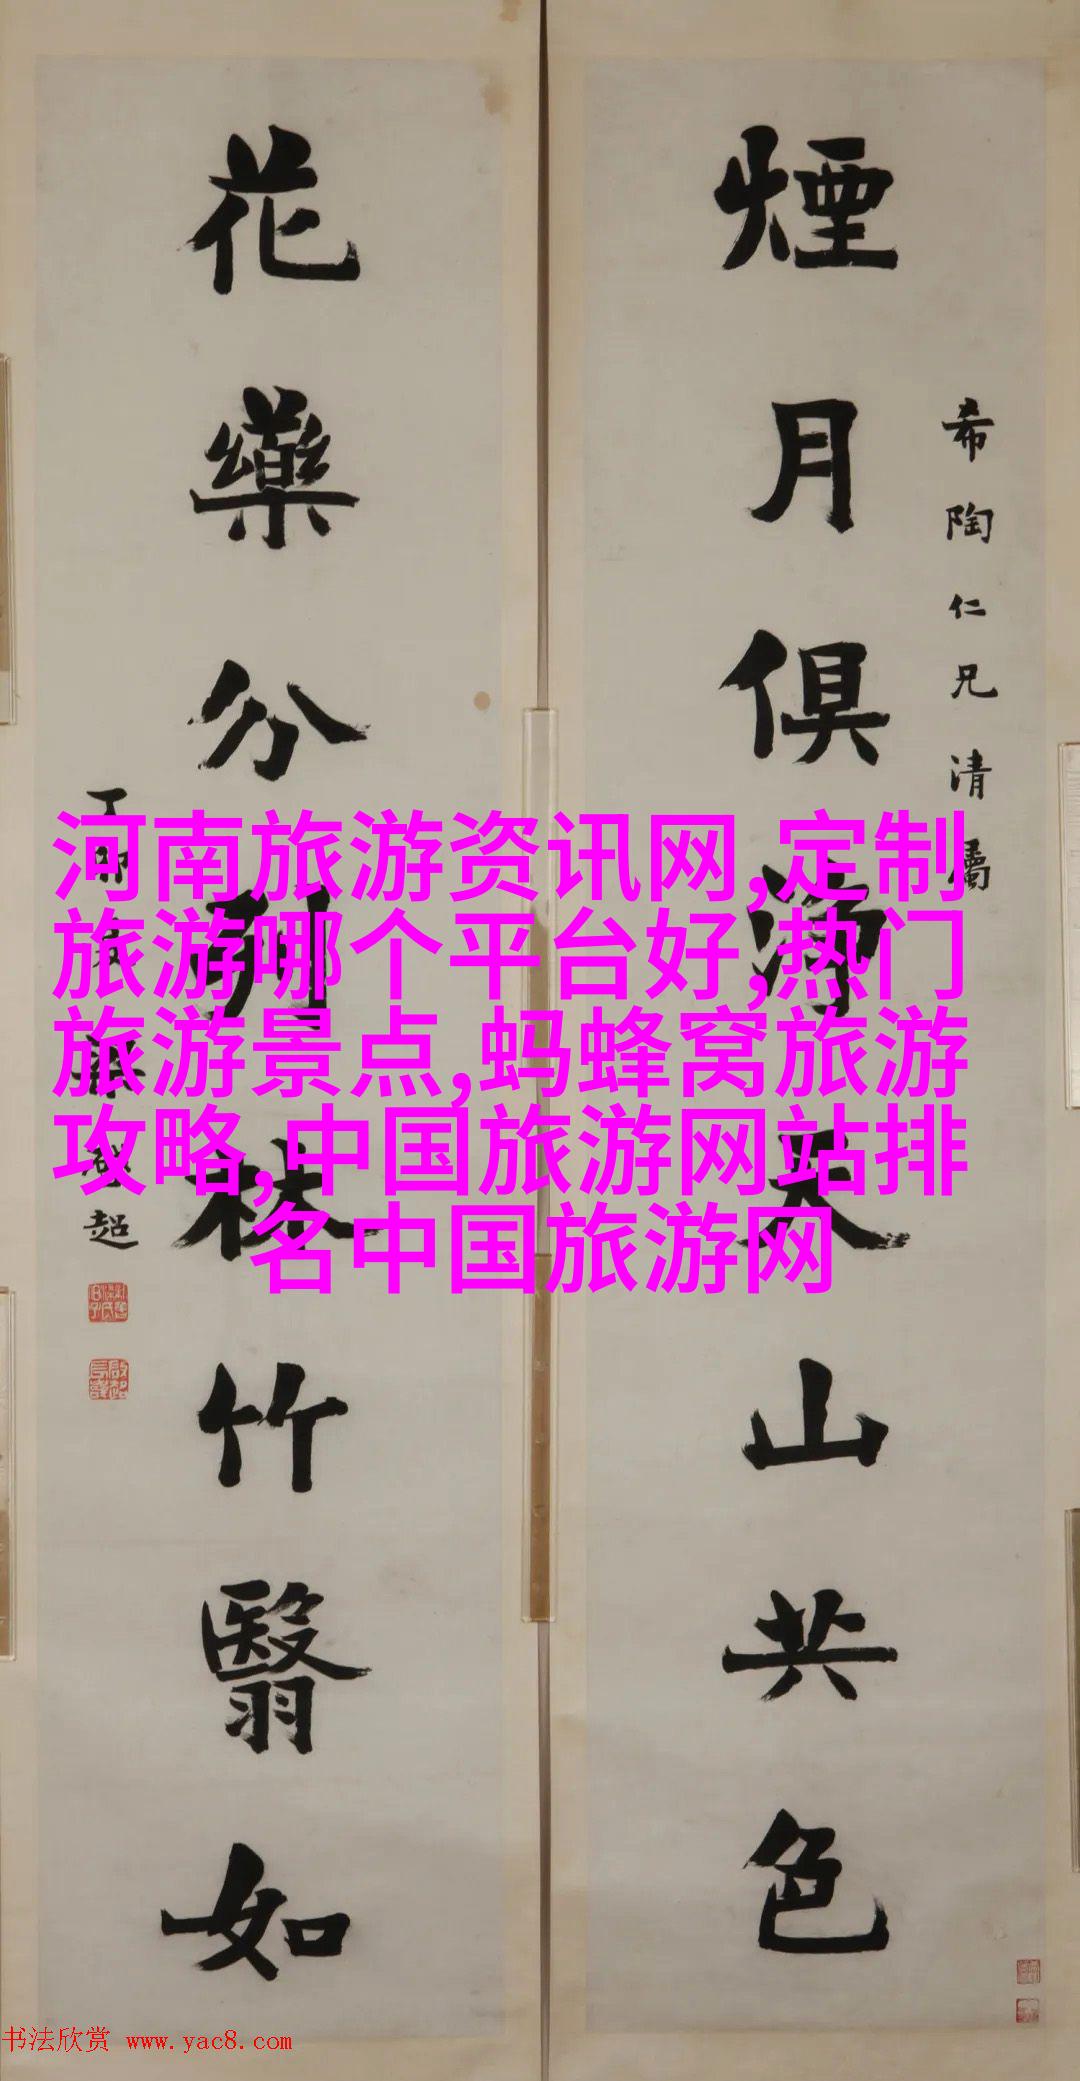 煙月俱清天山共色
希陶仁兄清屬
花藥分列林竹翳如
超
河南旅游资讯网,定制
旅游哪个平台好,热门
旅游景点,蚂蜂窝旅游
攻略,中国旅游网站排
名中国旅游网
书法欣赏 www.yac8.com